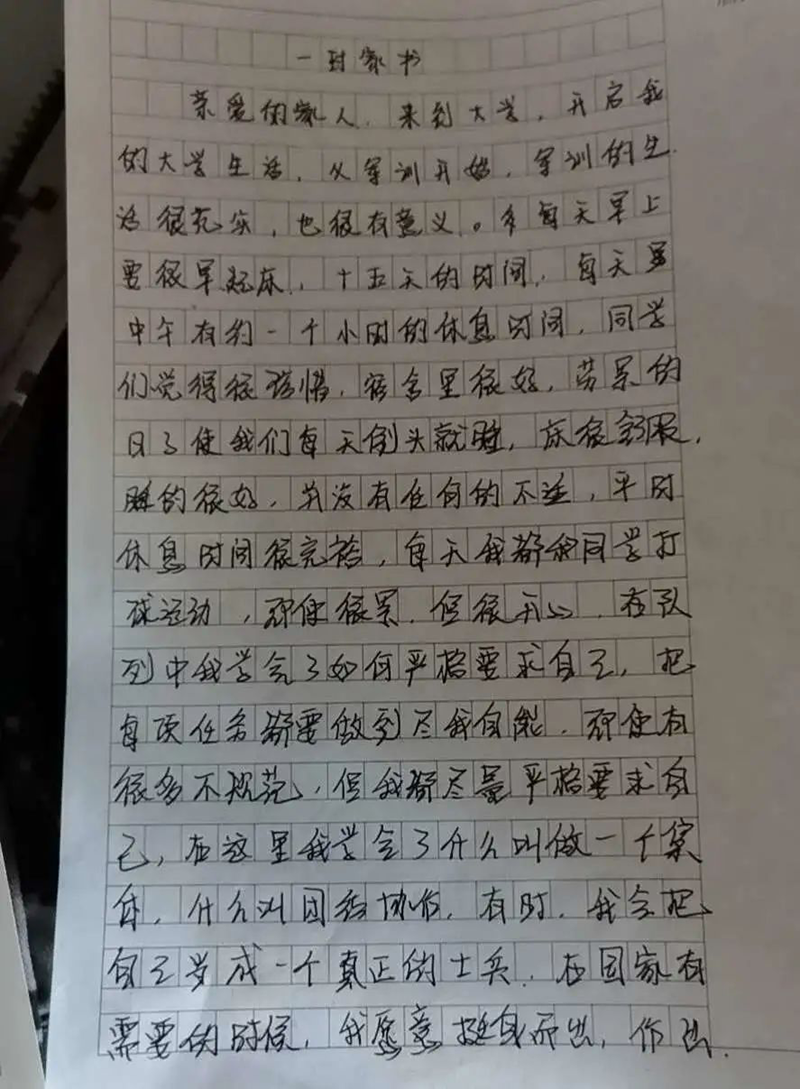 一封家书
亲爱的家人，来到大学，开启我
的大学生活，从军训开始，军训的生
活很充实，也很有意义。每天早上
要很早起床，十五天的时间，每天
中午有约一个小时的休息时间，同学
们觉得很珍惜，宿舍里很好，劳累的
日子使我们每天倒头就睡，床很舒服，
睡的很好，并没有任何的不适，平时
休息时间很充裕，每天我都和同学打
球运动，即使很累，但很开心，在队
列中我学会了如何严格要求自己，把
每项任务都要做到尽我自能，即使有
很多不规范，但我都尽量严格要求自
己，在这里我学会了什么叫做一个集
体，什么叫团结协作，有时，我会把
自己当成一个真正的士兵，在国家有
需要的时候，我愿意挺身而出，作出